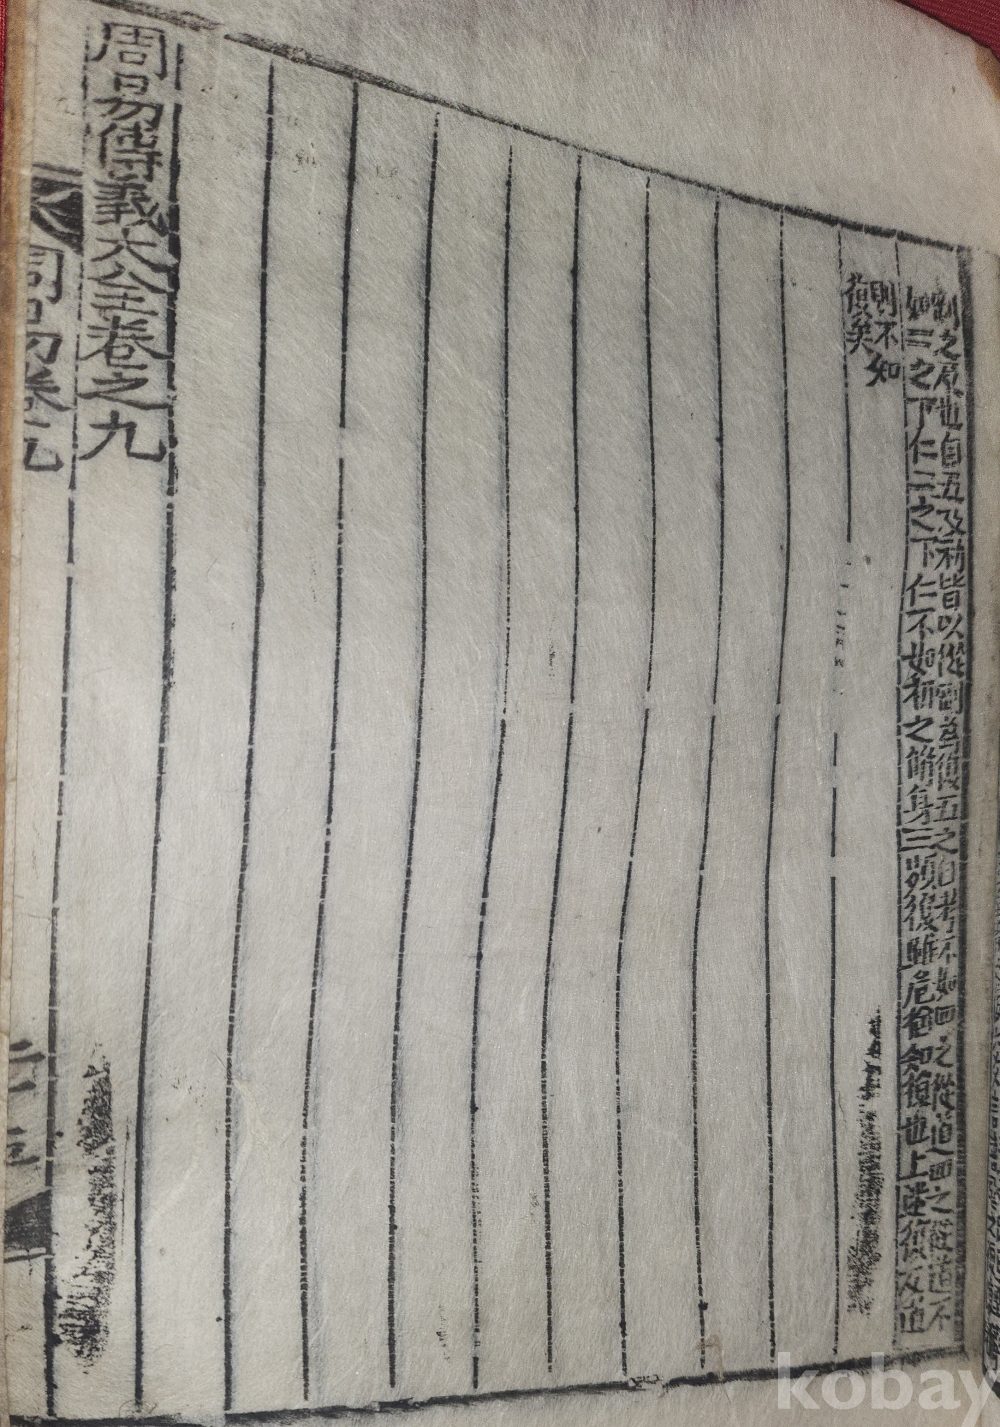 剝之反也自五及初皆以從剝爲復五之自考不如四之從道四之從道不
如二之下仁二之下仁不如初之脩身三頻復雖危猶知復也上迷復反道
則不知
復矣
周易傳義大全卷之九
周易卷九
kobay